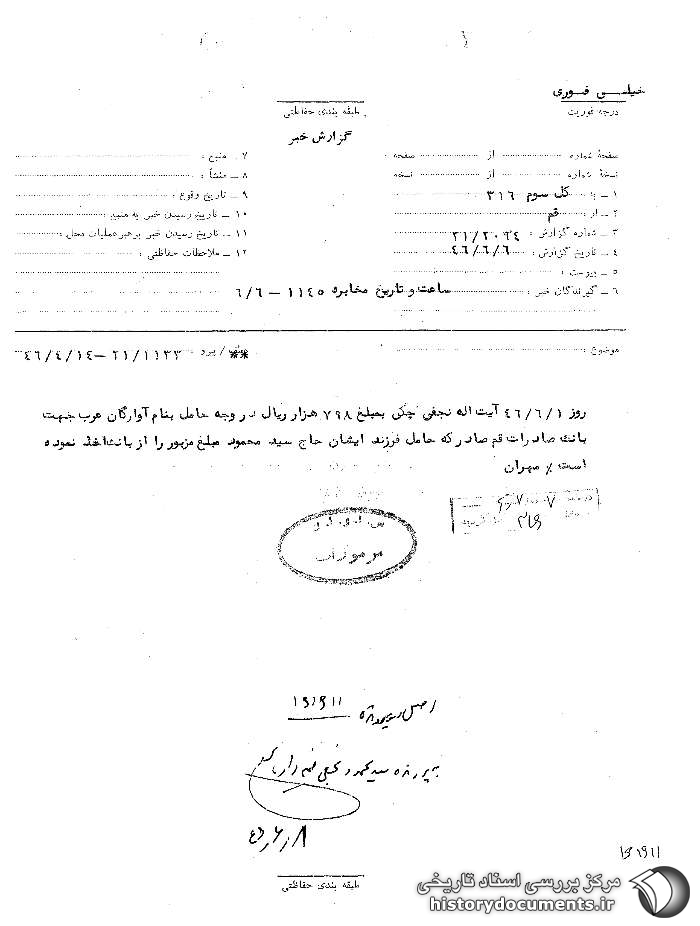 خیلی فوری
درجه فوریت
طبقه بندی حفاظتی
گزارش خبر
صفحهٔ شماره از صفحه
نسخهٔ شماره از نسخه
۱ ـ به : کل سوم ۳۱۶
۲ ـ از : قم
۳ ـ شماره گزارش : ۲۱/۲۰۳۴
۴ ـ تاریخ گزارش : ۴۶/۶/۶
۵ ـ پیوست :
۶ ـ گیرندگان خبر : ساعت و تاریخ مخابره ۱۱۴۵ – ۶/۶
۷ ـ منبع :
۸ ـ منشأ :
۹ ـ تاریخ وقوع :
۱۰ ـ تاریخ رسیدن خبر به منبع :
۱۱ ـ تاریخ رسیدن خبر برهبر عملیات محل :
۱۲ ـ ملاحظات حفاظتی :
موضوع :
/ پیرو : ۲۱/۱۱۳۳ – ۴۶/۴/۱۴
روز ۴۶/۶/۱ آیت اله نجفی چکی بمبلغ ۷۹۸ هزار ریال در وجه حامل بنام آوارگان عرب جهت
بانک صادرات قم صادر که حامل فرزند ایشان حاج سید محمود مبلغ مزبور را از بانک اخذ نموده
است ٪ مهران
مرموزات
طبقه بندی حفاظتی
مرکز بررسی اسناد تاریخی
historydocuments.ir